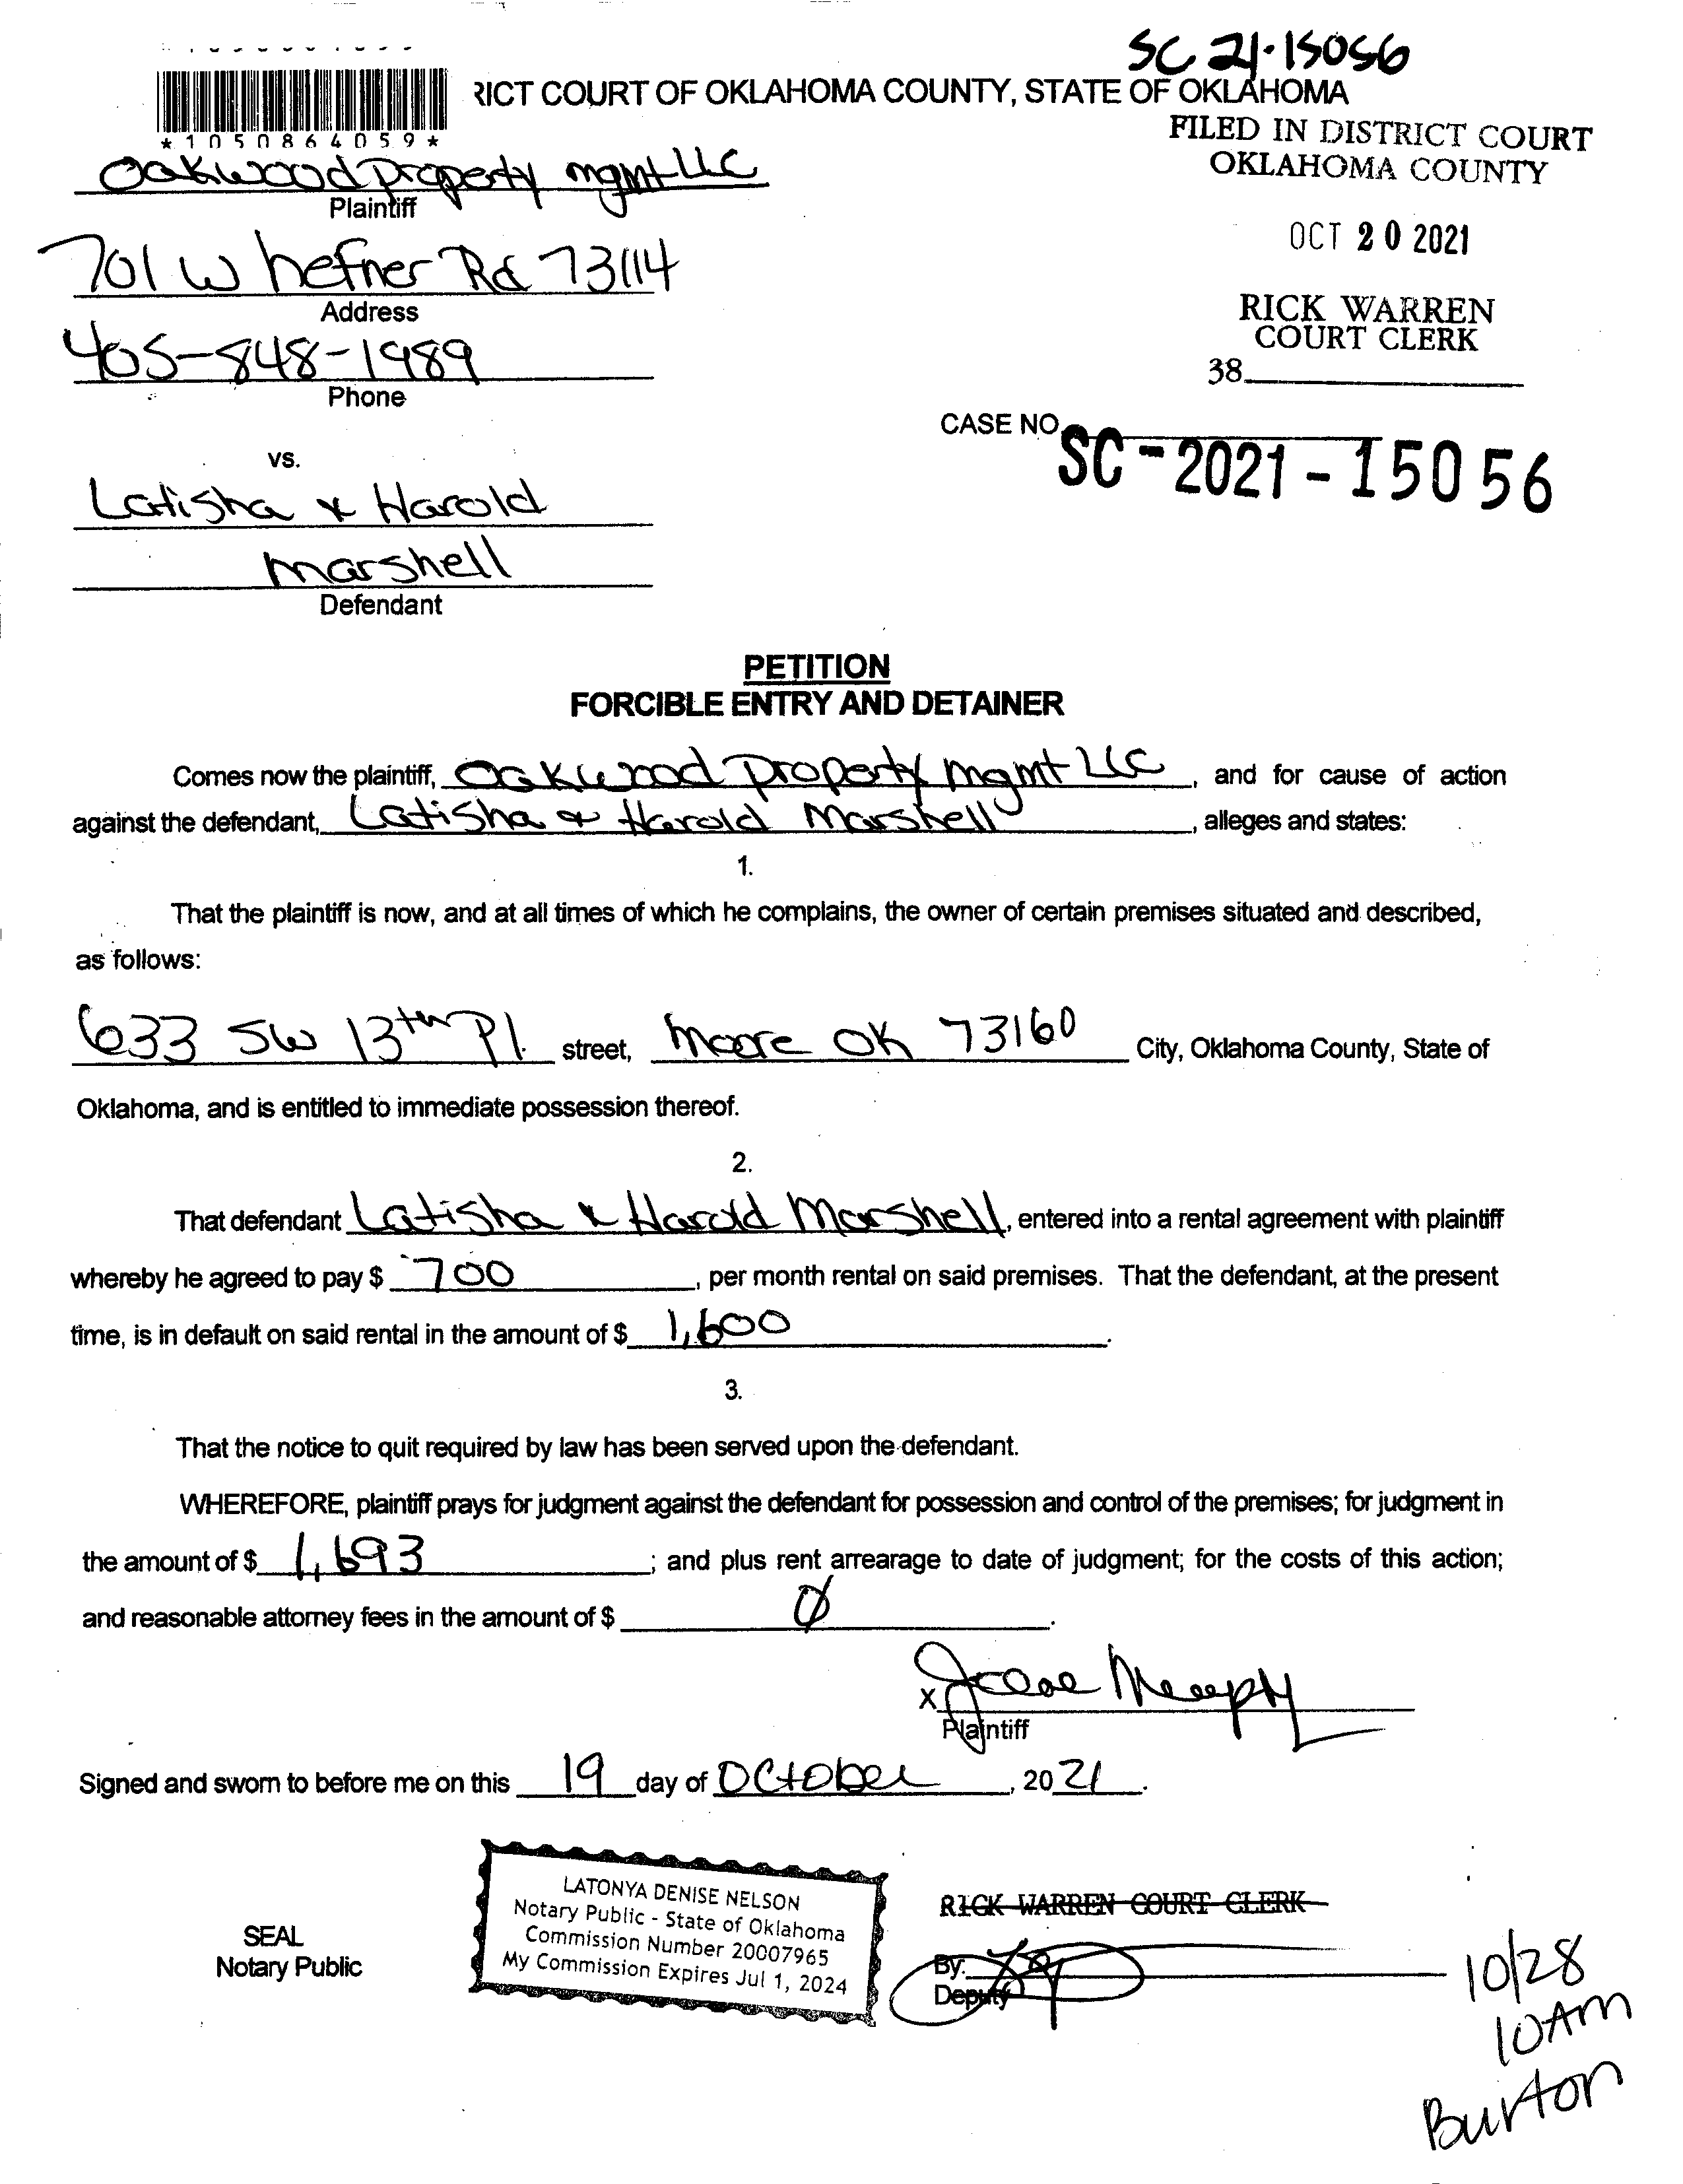 SC 21-15056
RICT COURT OF OKLAHOMA COUNTY, STATE OF OKLAHOMA
*1050864059*
FILED IN DISTRICT COURT
OKLAHOMA COUNTY
Oakwood Property mgmt LLC
Plaintiff
OCT 20 2021
701 W hefner Rd 73114
Address
RICK WARREN
COURT CLERK
405-848-1989
38
Phone
CASE NO.
SC-2021-15056
vs.
Latisha & Harold
Marshell
Defendant
PETITION
FORCIBLE ENTRY AND DETAINER
Comes now the plaintiff, Oakwood Property mgmt LLC, and for cause of action
against the defendant, Latisha & Harold Marshell, alleges and states:
1.
That the plaintiff is now, and at all times of which he complains, the owner of certain premises situated and described,
as follows:
633 SW 13th Pl. street, Moore OK 73160 City, Oklahoma County, State of
Oklahoma, and is entitled to immediate possession thereof.
2.
That defendant Latisha & Harold Marshell, entered into a rental agreement with plaintiff
whereby he agreed to pay $ 700, per month rental on said premises. That the defendant, at the present
time, is in default on said rental in the amount of $ 1,600.
3.
That the notice to quit required by law has been served upon the defendant.
WHEREFORE, plaintiff prays for judgment against the defendant for possession and control of the premises; for judgment in
the amount of $ 1,693; and plus rent arrearage to date of judgment; for the costs of this action;
and reasonable attorney fees in the amount of $ Ø.
X
Plaintiff
Signed and sworn to before me on this 19 day of October, 2021.
LATONYA DENISE NELSON
Notary Public - State of Oklahoma
Commission Number 20007965
My Commission Expires Jul 1, 2024
SEAL
Notary Public
RICK WARREN COURT CLERK
By:
Deputy
10/28
10AM
Burton